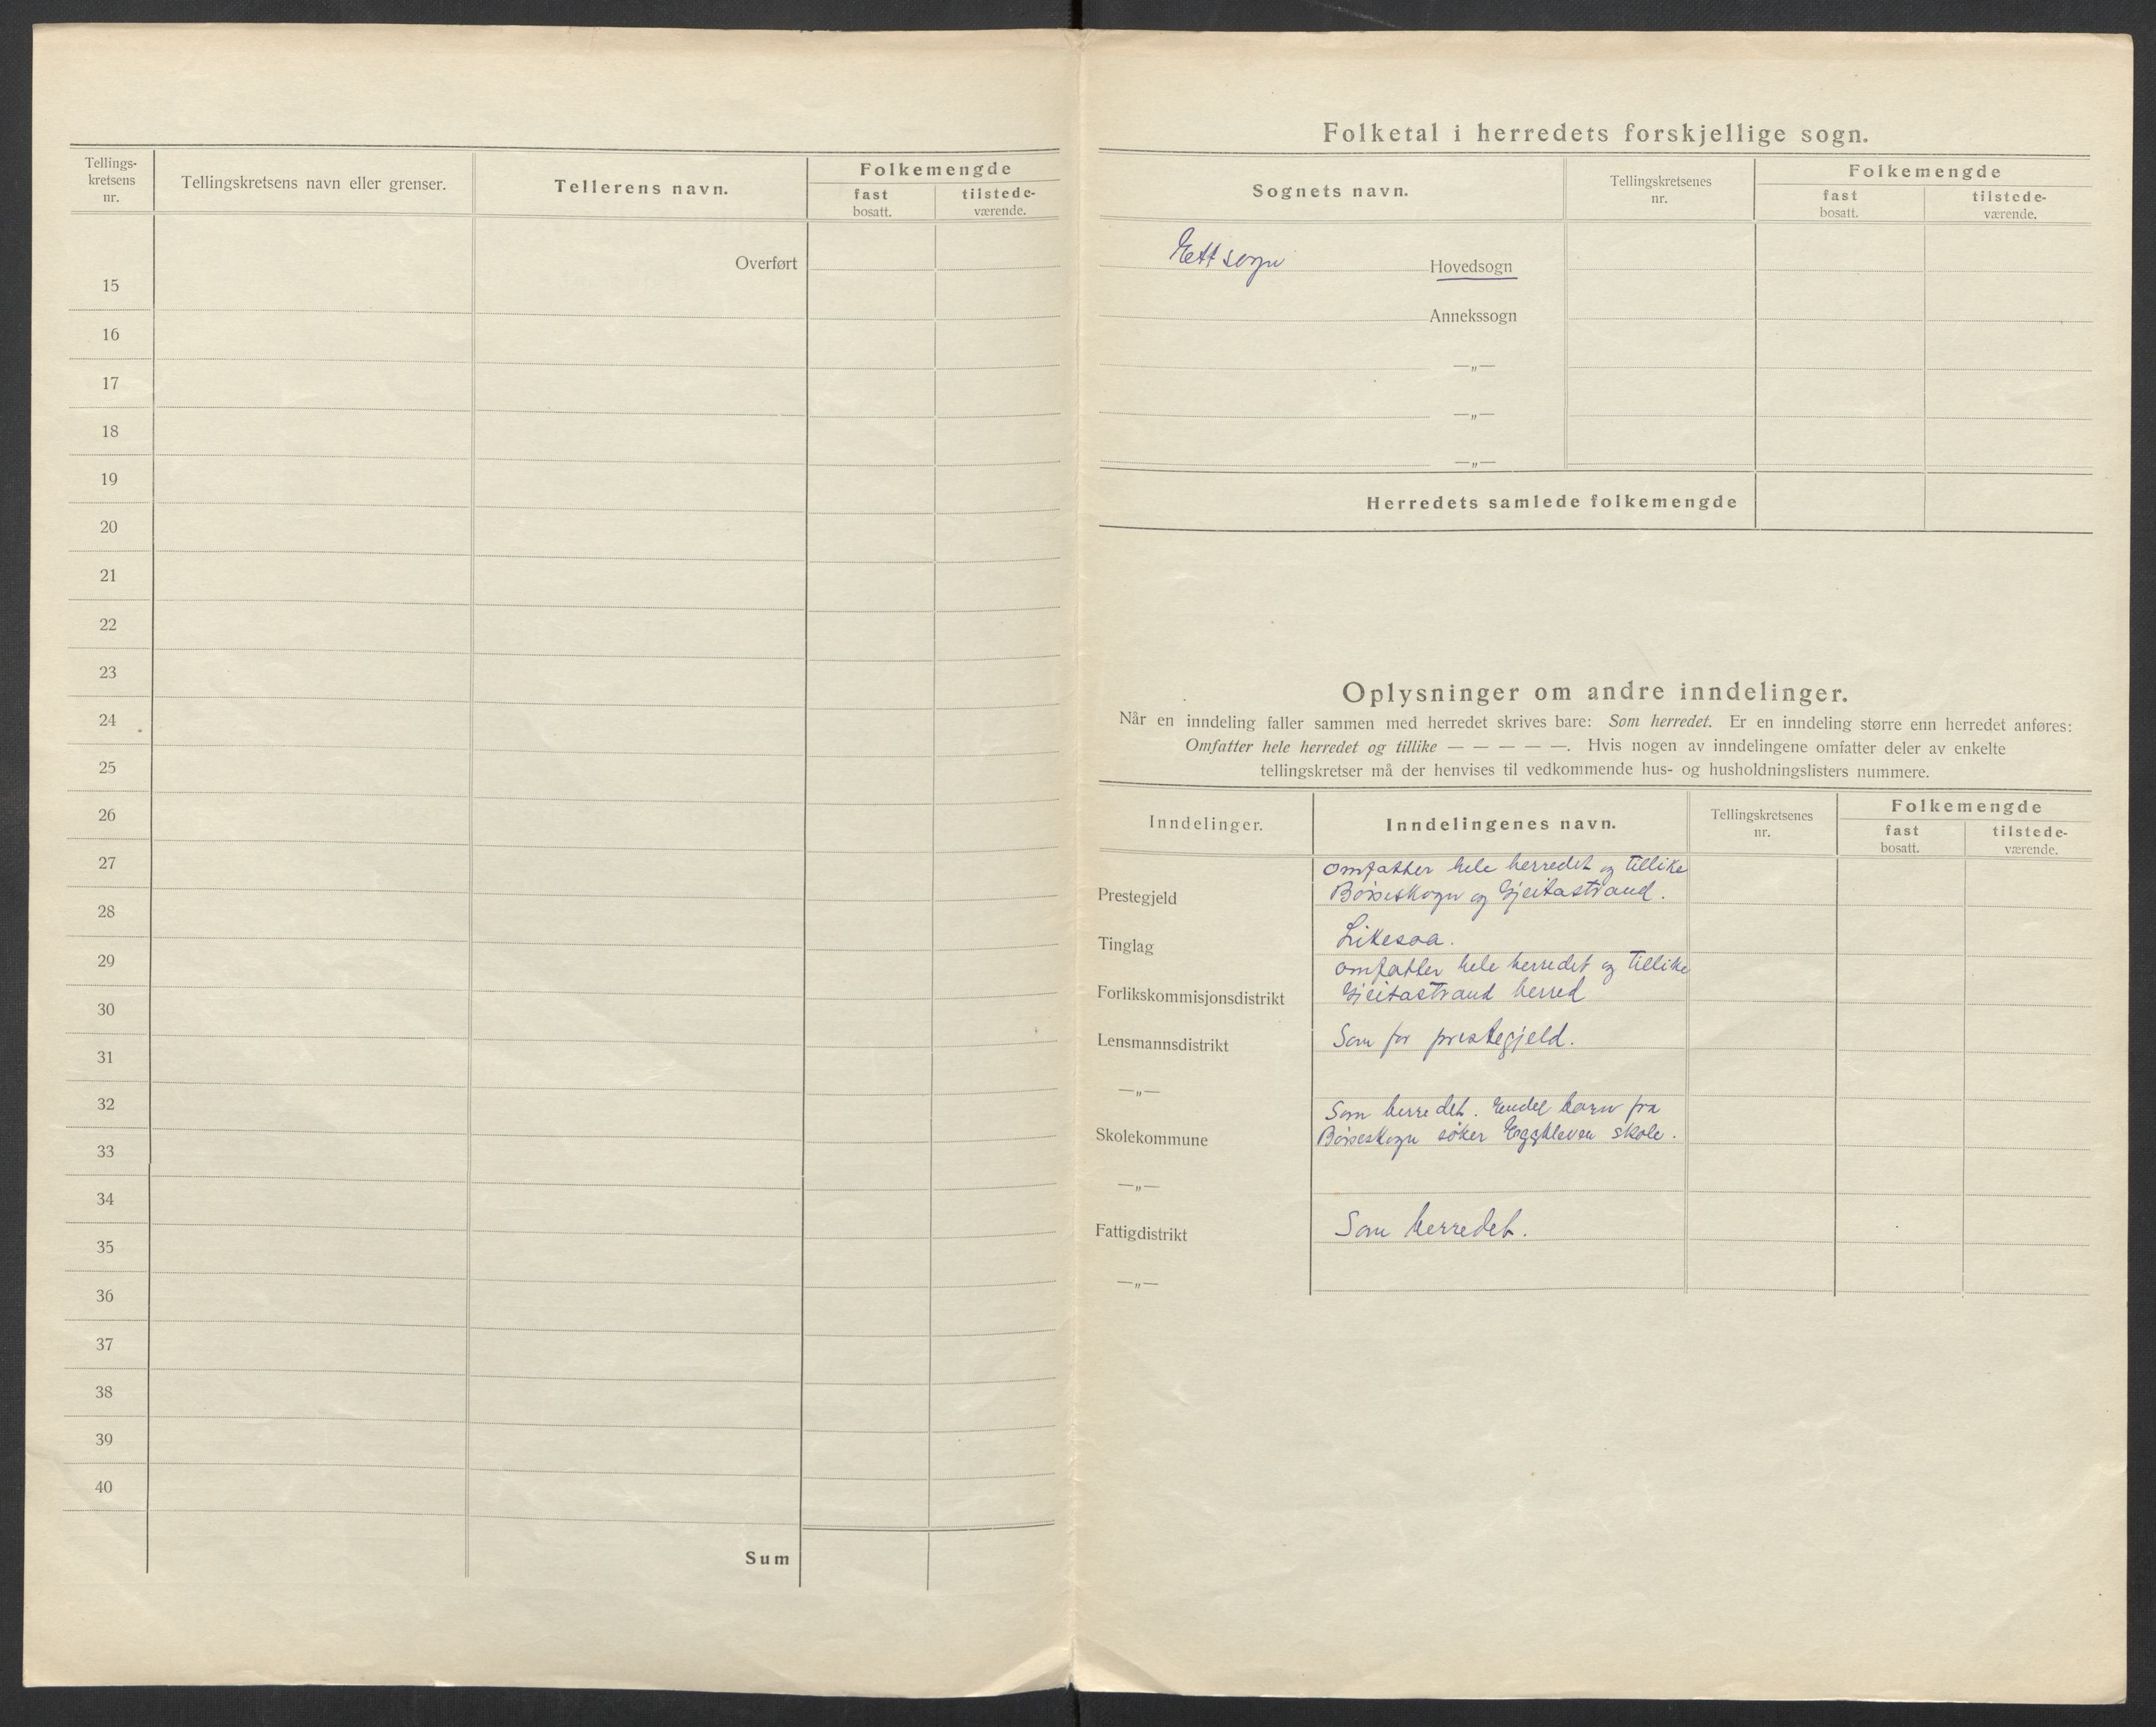 Tellings-
kretsens
nr.
Tellingskretsens navn eller grenser.
Tellerens navn.
Folkemengde
fast
bosatt.
tilstede-
værende.
Overført
15
16
17
18
19
20
21
22
23
24
25
26
27
28
29
30
31
32
33
34
35
36
37
38
39
40
Sum
Folketal i herredets forskjellige sogn.
Sognets navn.
Tellingskretsenes
nr.
Folkemengde
fast
bosatt.
tilstede-
værende.
Ett sogn Hovedsogn
Annekssogn
—„—
—„—
—„—
Herredets samlede folkemengde
Oplysninger om andre inndelinger.
Når en inndeling faller sammen med herredet skrives bare: Som herredet. Er en inndeling større enn herredet anføres:
Omfatter hele herredet og tillike — — — — —. Hvis nogen av inndelingene omfatter deler av enkelte
tellingskretser må der henvises til vedkommende hus- og husholdningslisters nummere.
Inndelinger.
Inndelingenes navn.
Tellingskretsenes
nr.
Folkemengde
fast
bosatt.
tilstede-
værende.
Omfatter hele herredet og tillike
Prestegjeld Børseskogn og Gjeitastrand.
Tinglag Likesaa.
Omfatter hele herredet og tillike
Forlikskommisjonsdistrikt Gjeitastrand herred
Lensmannsdistrikt Som for prestegjeld.
—„—
Som herredet. Endel barn fra
Skolekommune Børseskogn søker Eggkleven skole.
—„—
Fattigdistrikt Som herredet.
—„—